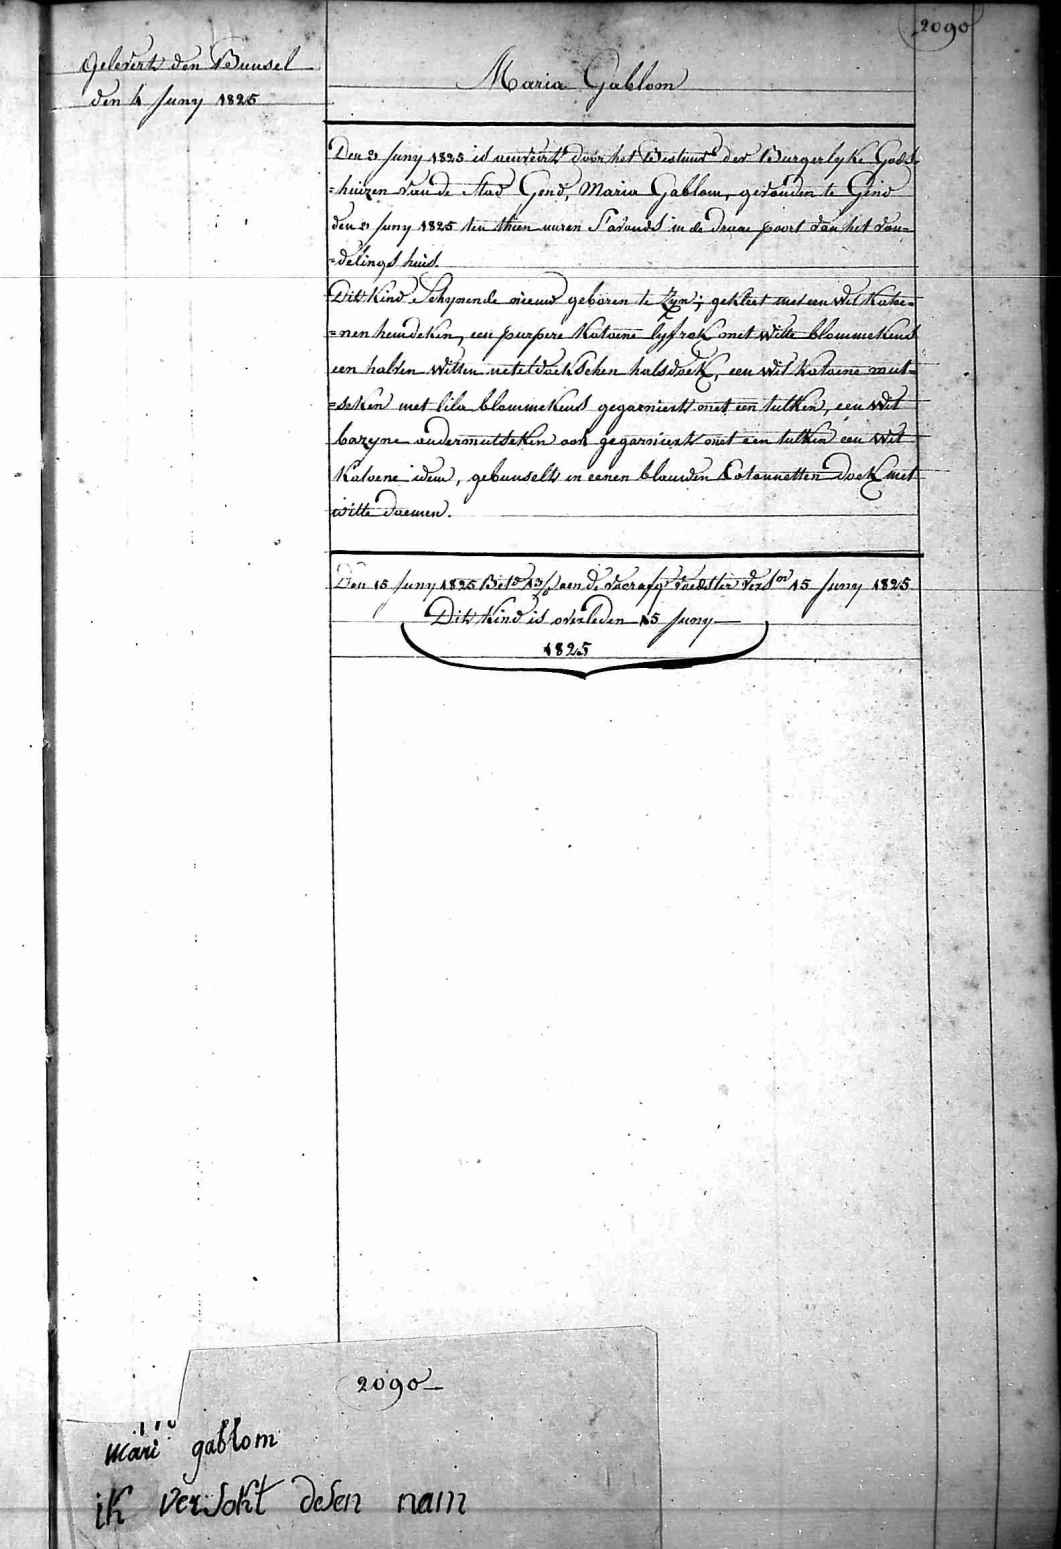 2090
Gelevert den Bunsel
den 4 Juny 1825
Maria Gablom
Den 2 Juny 1825 is aenveirt door het Bestuur der Burgerlyke Gods-
=huizen van de Stad Gend, Maria Gablom, gevonden te Gend
den 2 Juny 1825 ten thien uuren S'avonds in de draae poort van het von=
=delings huis.
Dit Kind Schynende nieuw geboren te Zyn; gekleet met een wit Katoe=
=nen hemdeken, een purpere Katoene lyfrok met witte blommekens
een halven witten neteldoekschen halsdoek, een wit Katoene mut=
=seken met lila blommekens gegarniert met een tulken, een wit
bazyne ondermutseken ook gegarniert met een tulken een wit
Katoene idem, gebunselt in eenen blauwen Cotonnetten doek met
witte daemen.
Den 15 Juny 1825 aen de voedster 15 Juny 1825
Dit Kind is overleden 15 Juny
1825
2090
Mari gablom
ik versokt desen nam